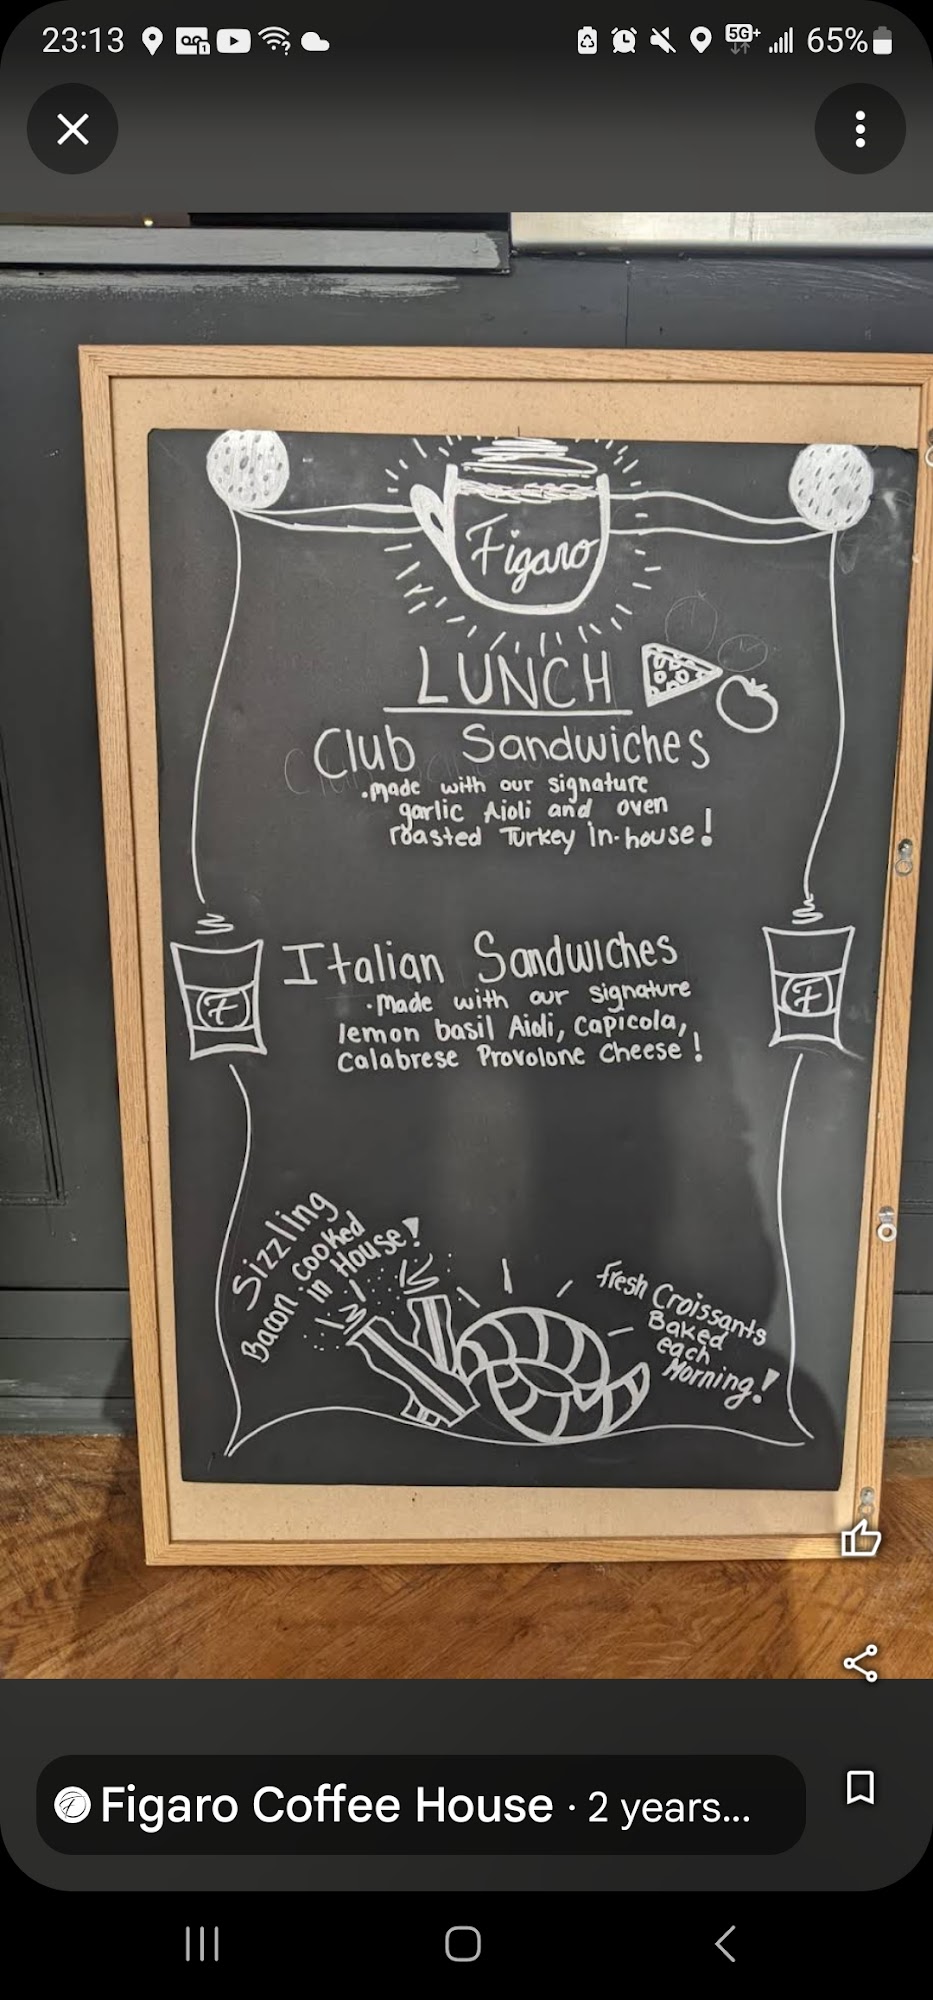 23:13
5G+
65%
Figaro
LUNCH
Club Sandwiches
.made with our signature
garlic Aioli and oven
roasted Turkey in-house!
Italian Sandwiches
F
F
.Made with our signature
lemon basil Aioli, Capicola,
Calabrese Provolone Cheese!
Sizzling
Bacon cooked
in House!
fresh Croissants
Baked
each
Morning!
Figaro Coffee House · 2 years...